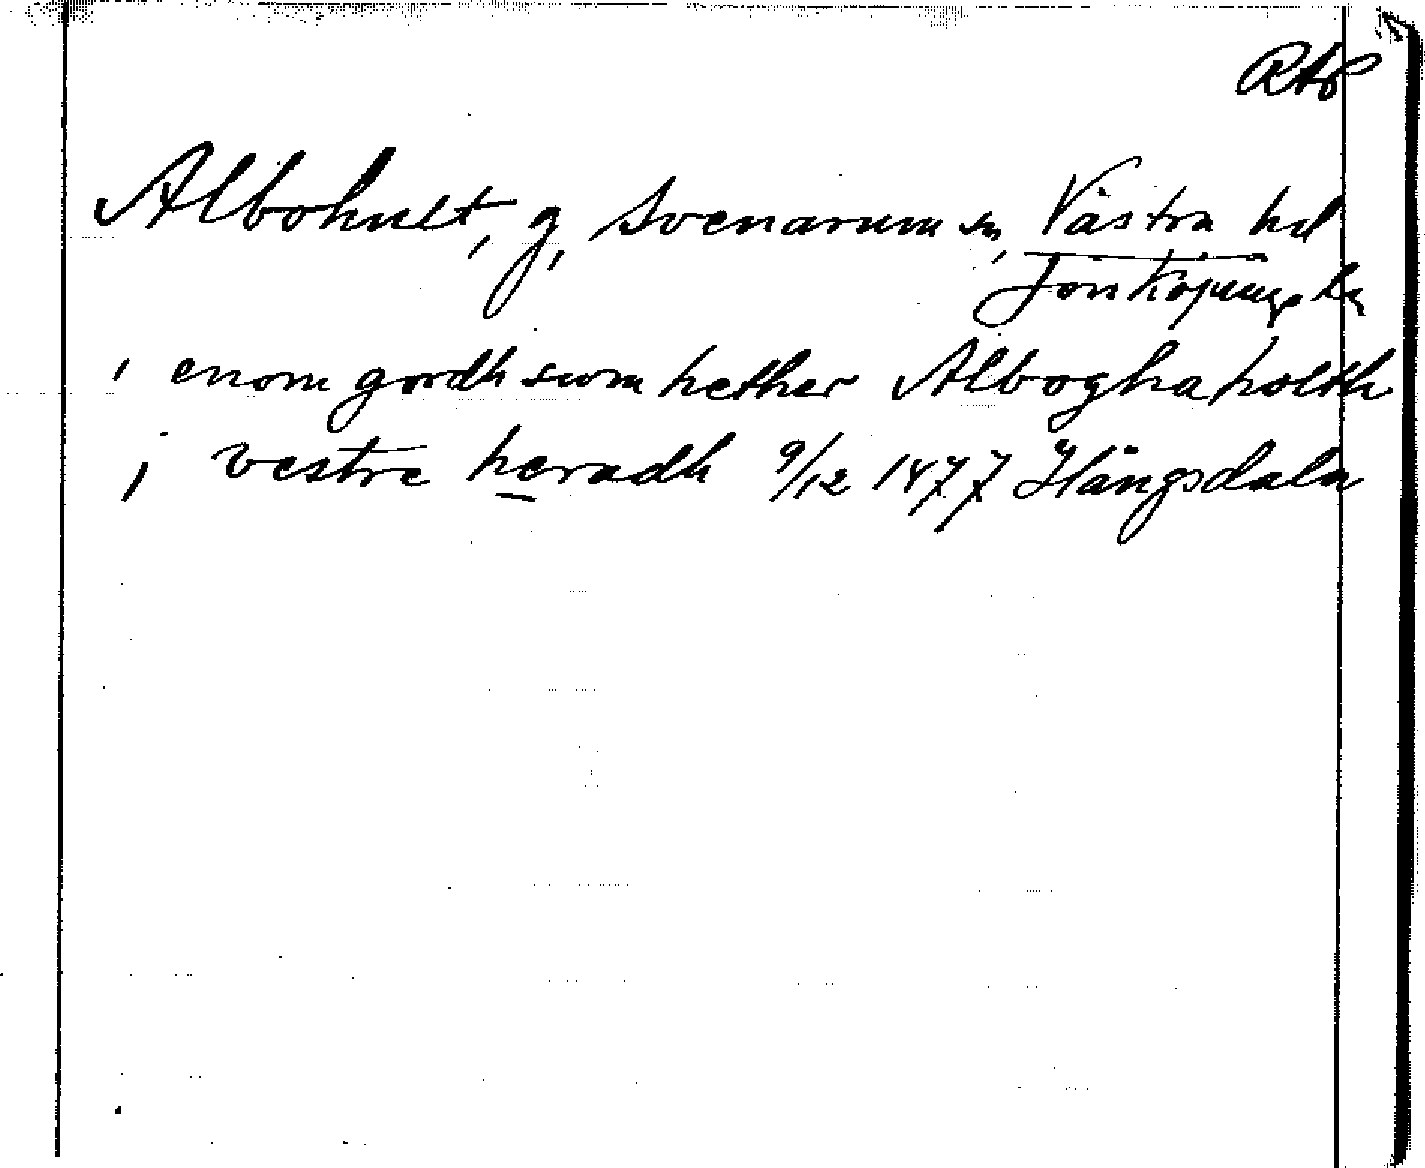 RAp
Albohult, g, Svenarum sn, Västra hd
Jönköpings ln
i enom gordh swm hether Alboghaholth
j vestre heradh 9/12 1477 Hångsdala